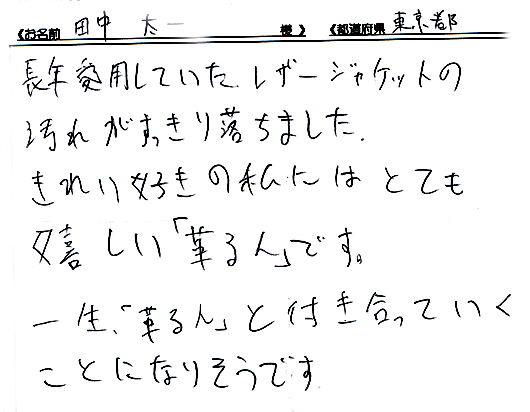 《お名前 田中 太一 様》《都道府県 東京都
長年愛用していたレザージャケットの
汚れがすっきり落ちました。
きれい好きの私にはとても
嬉しい「革るん」です。
一生、「革るん」と付き合っていく
ことになりそうです